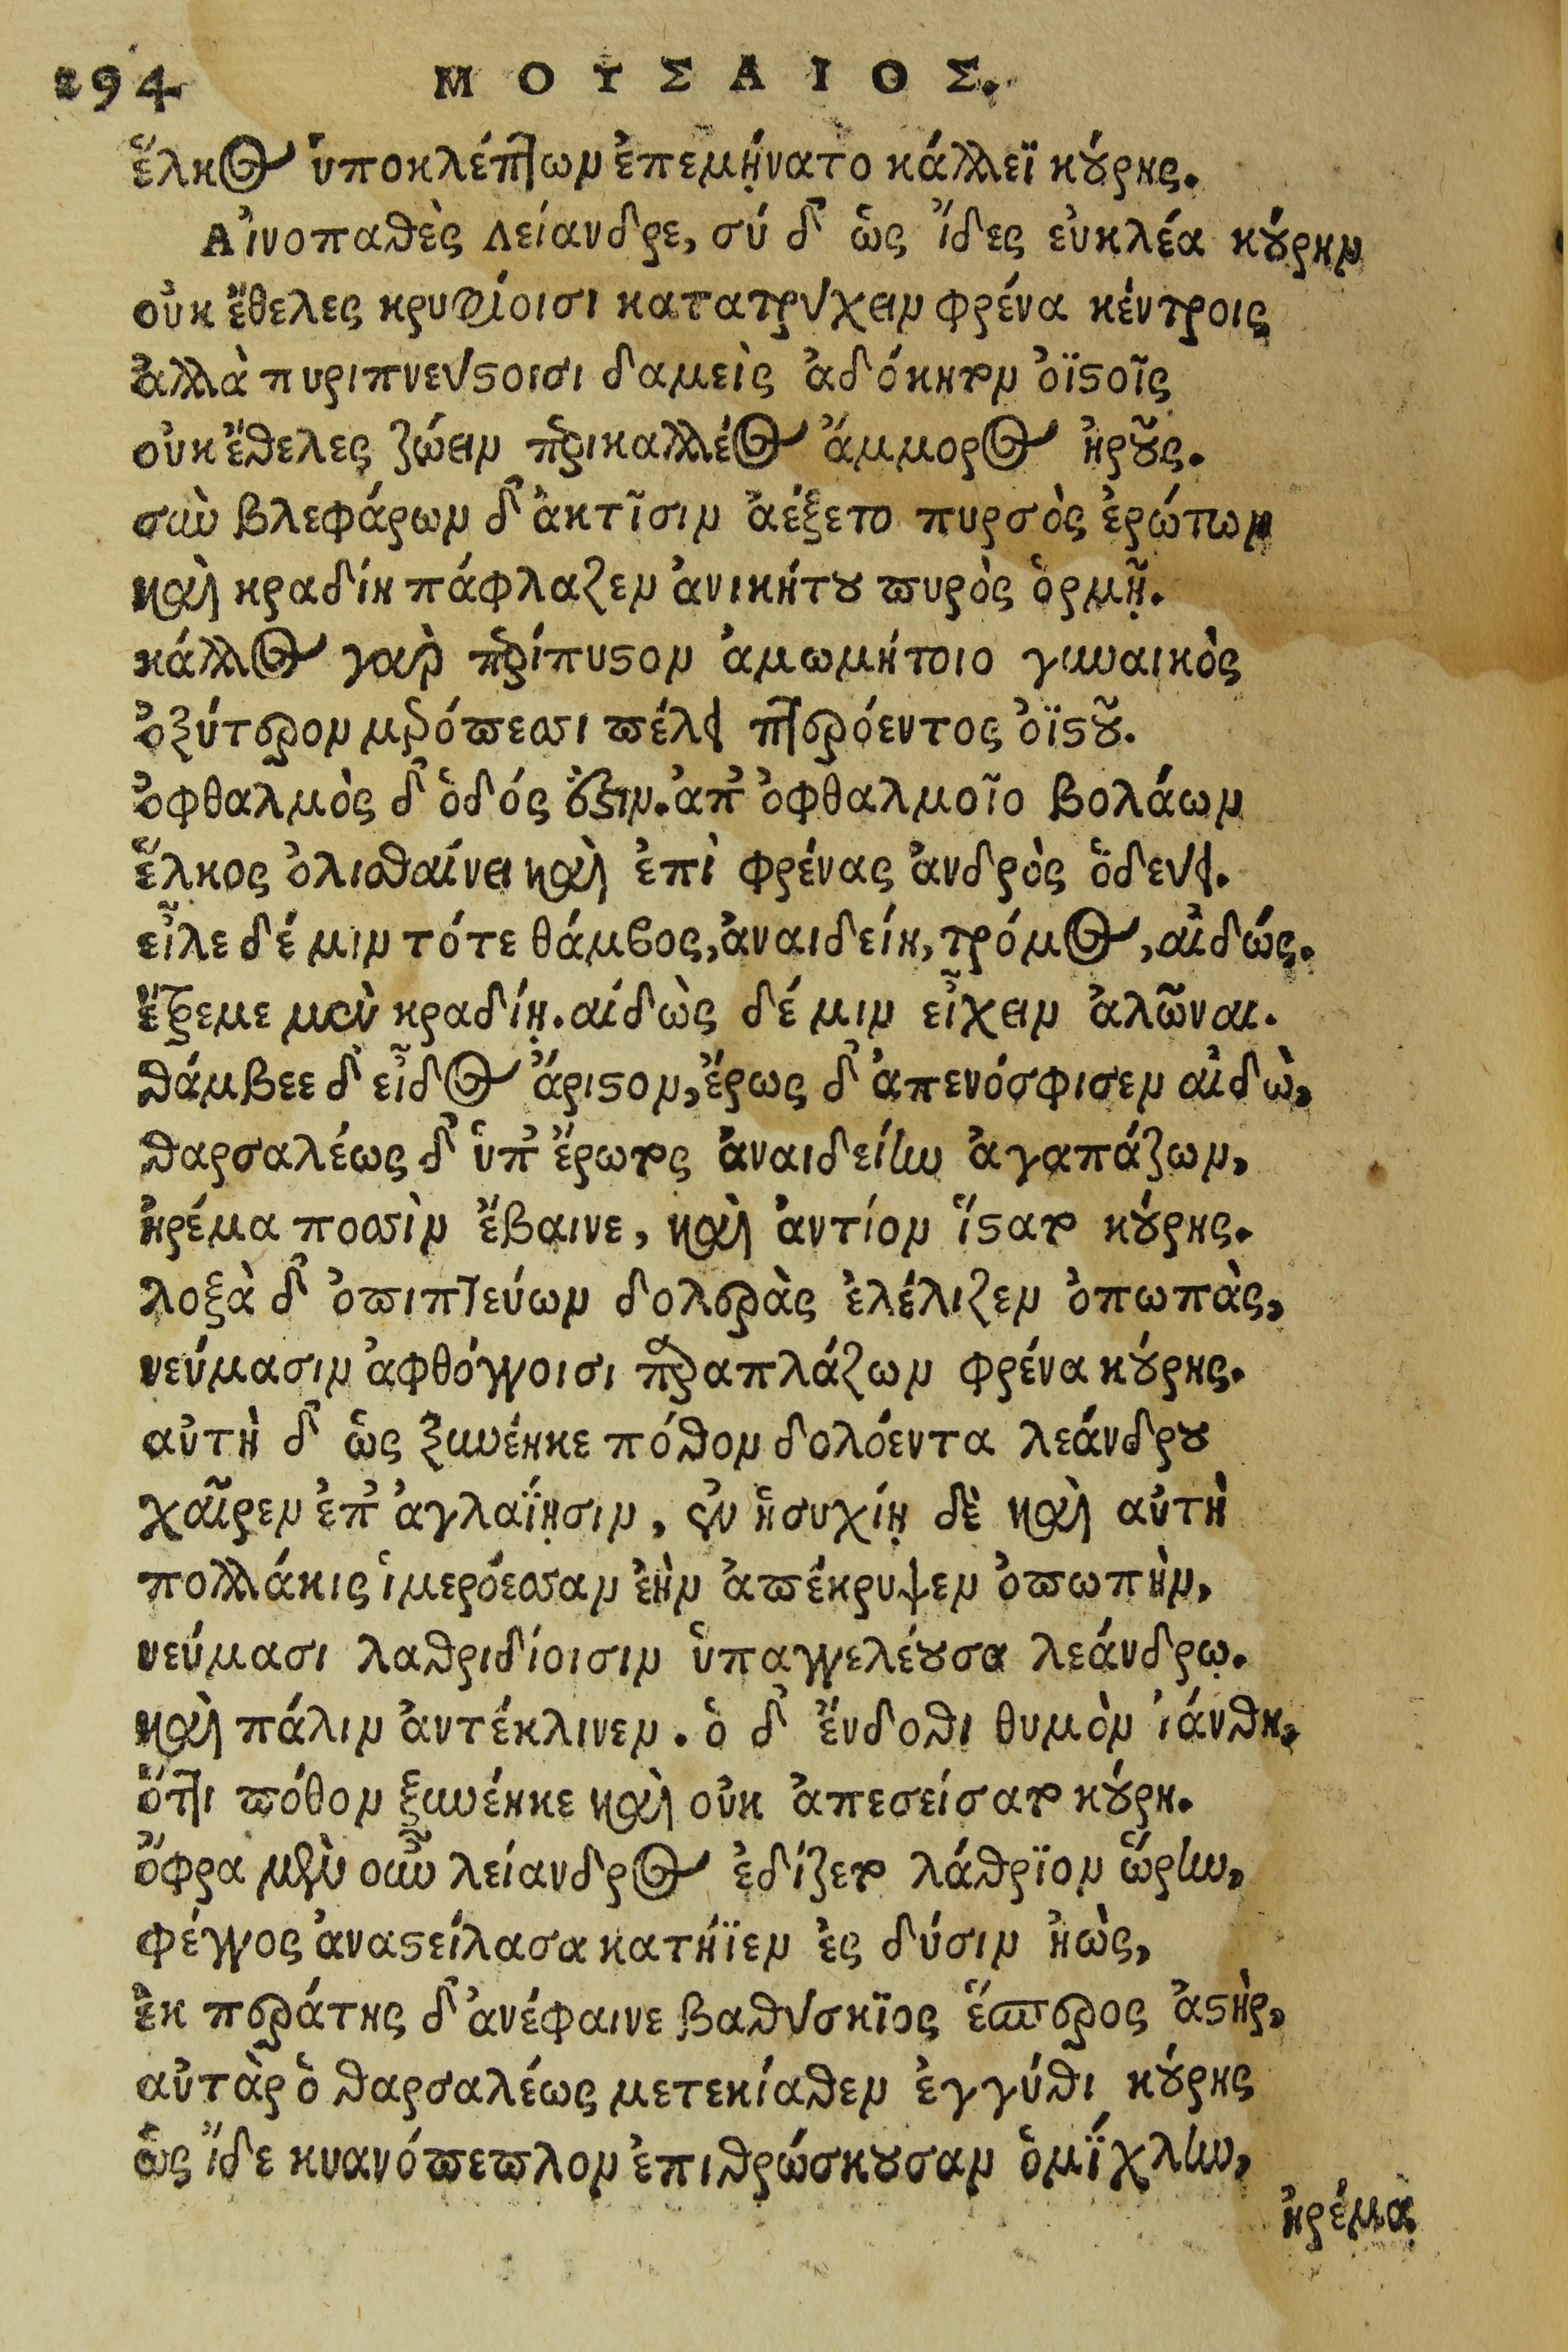 294 ΜΟΥΣΑΙΟΣ.
ἕλκος ὑποκλέπτων ἐπεμῄνατο κάλλεϊ κούρης.
Αἰνοπαθὲς Λείανδρε, σύ δ' ὡς ἴδες εὐκλέα κούρην
οὐκ ἔθελες κρυφίοισι κατατρύχειν φρένα κέντροις
ἀλλὰ πυριπνεύστοισι δαμεὶς ἀδόκητον ὀϊστοῖς
οὐκ ἔθελες ζώειν περικαλλέος ἄμμορος ἡροῦς.
σὺν βλεφάρων δ' ἀκτῖσιν ἀέξετο πυρσὸς ἐρώτων
καὶ κραδίη πάφλαζεν ἀνικήτου πυρὸς ὁρμῇ.
κάλλος γὰρ περίπυστον ἀμωμήτοιο γυναικὸς
ὀξύτερον μερόπεσσι πέλει πτερόεντος ὀϊστοῦ.
ὀφθαλμὸς δ' ὁδός ἐστιν. ἀπ' ὀφθαλμοῖο βολάων
ἕλκος ὀλισθαίνει καὶ ἐπὶ φρένας ἀνδρὸς ὁδεύει.
εἷλε δέ μιν τότε θάμβος, ἀναιδείη, τρόμος, αἰδώς.
ἔτρεμε μὲν κραδίῃ. αἰδὼς δέ μιν εἶχειν ἁλῶναι.
θάμβεε δ' εἶδος ἄριστον, ἔρως δ' ἀπενόσφισεν αἰδὼ,
θαρσαλέως δ' ὑπ' ἔρωτος ἀναιδείην ἀγαπάζων,
ἠρέμα ποσσὶν ἔβαινε, καὶ ἀντίον ἵστατο κούρης.
λοξὰ δ' ὀπιπτεύων δολερὰς ἐλέλιζεν ὀπωπὰς,
νεύμασιν ἀφθόγγοισι παραπλάζων φρένα κούρης.
αὐτὴ δ' ὡς ξυνέηκε πόθον δολόεντα λεάνδρου
χαῖρεν ἐπ' ἀγλαΐῃσιν, ἐν ἡσυχίῃ δὲ καὶ αὐτὴ
πολλάκις ἱμερόεσσαν ἑὴν ἀπέκρυψεν ὀπωπὴν,
νεύμασι λαθριδίοισιν ὑπαγγελέουσα λεάνδρῳ.
καὶ πάλιν ἀντέκλινεν. ὁ δ' ἔνδοθι θυμὸν ἰάνθη,
ὅττι πόθον ξυνέηκε καὶ οὐκ ἀπεσείσατο κούρη.
ὄφρα μὲν οὖν λείανδρος ἐδίζετο λάθρϊον ὥρην,
φέγγος ἀναστείλασα κατήϊεν ἐς δύσιν ἠὼς,
ἐκ περάτης δ' ἀνέφαινε βαθύσκϊος ἕσπερος ἀστὴρ,
αὐτὰρ ὁ θαρσαλέως μετεκίαθεν ἐγγύθι κούρης
ὡς ἴδε κυανόπεπλον ἐπιθρώσκουσαν ὁμΐχλην,
ἠρέμα